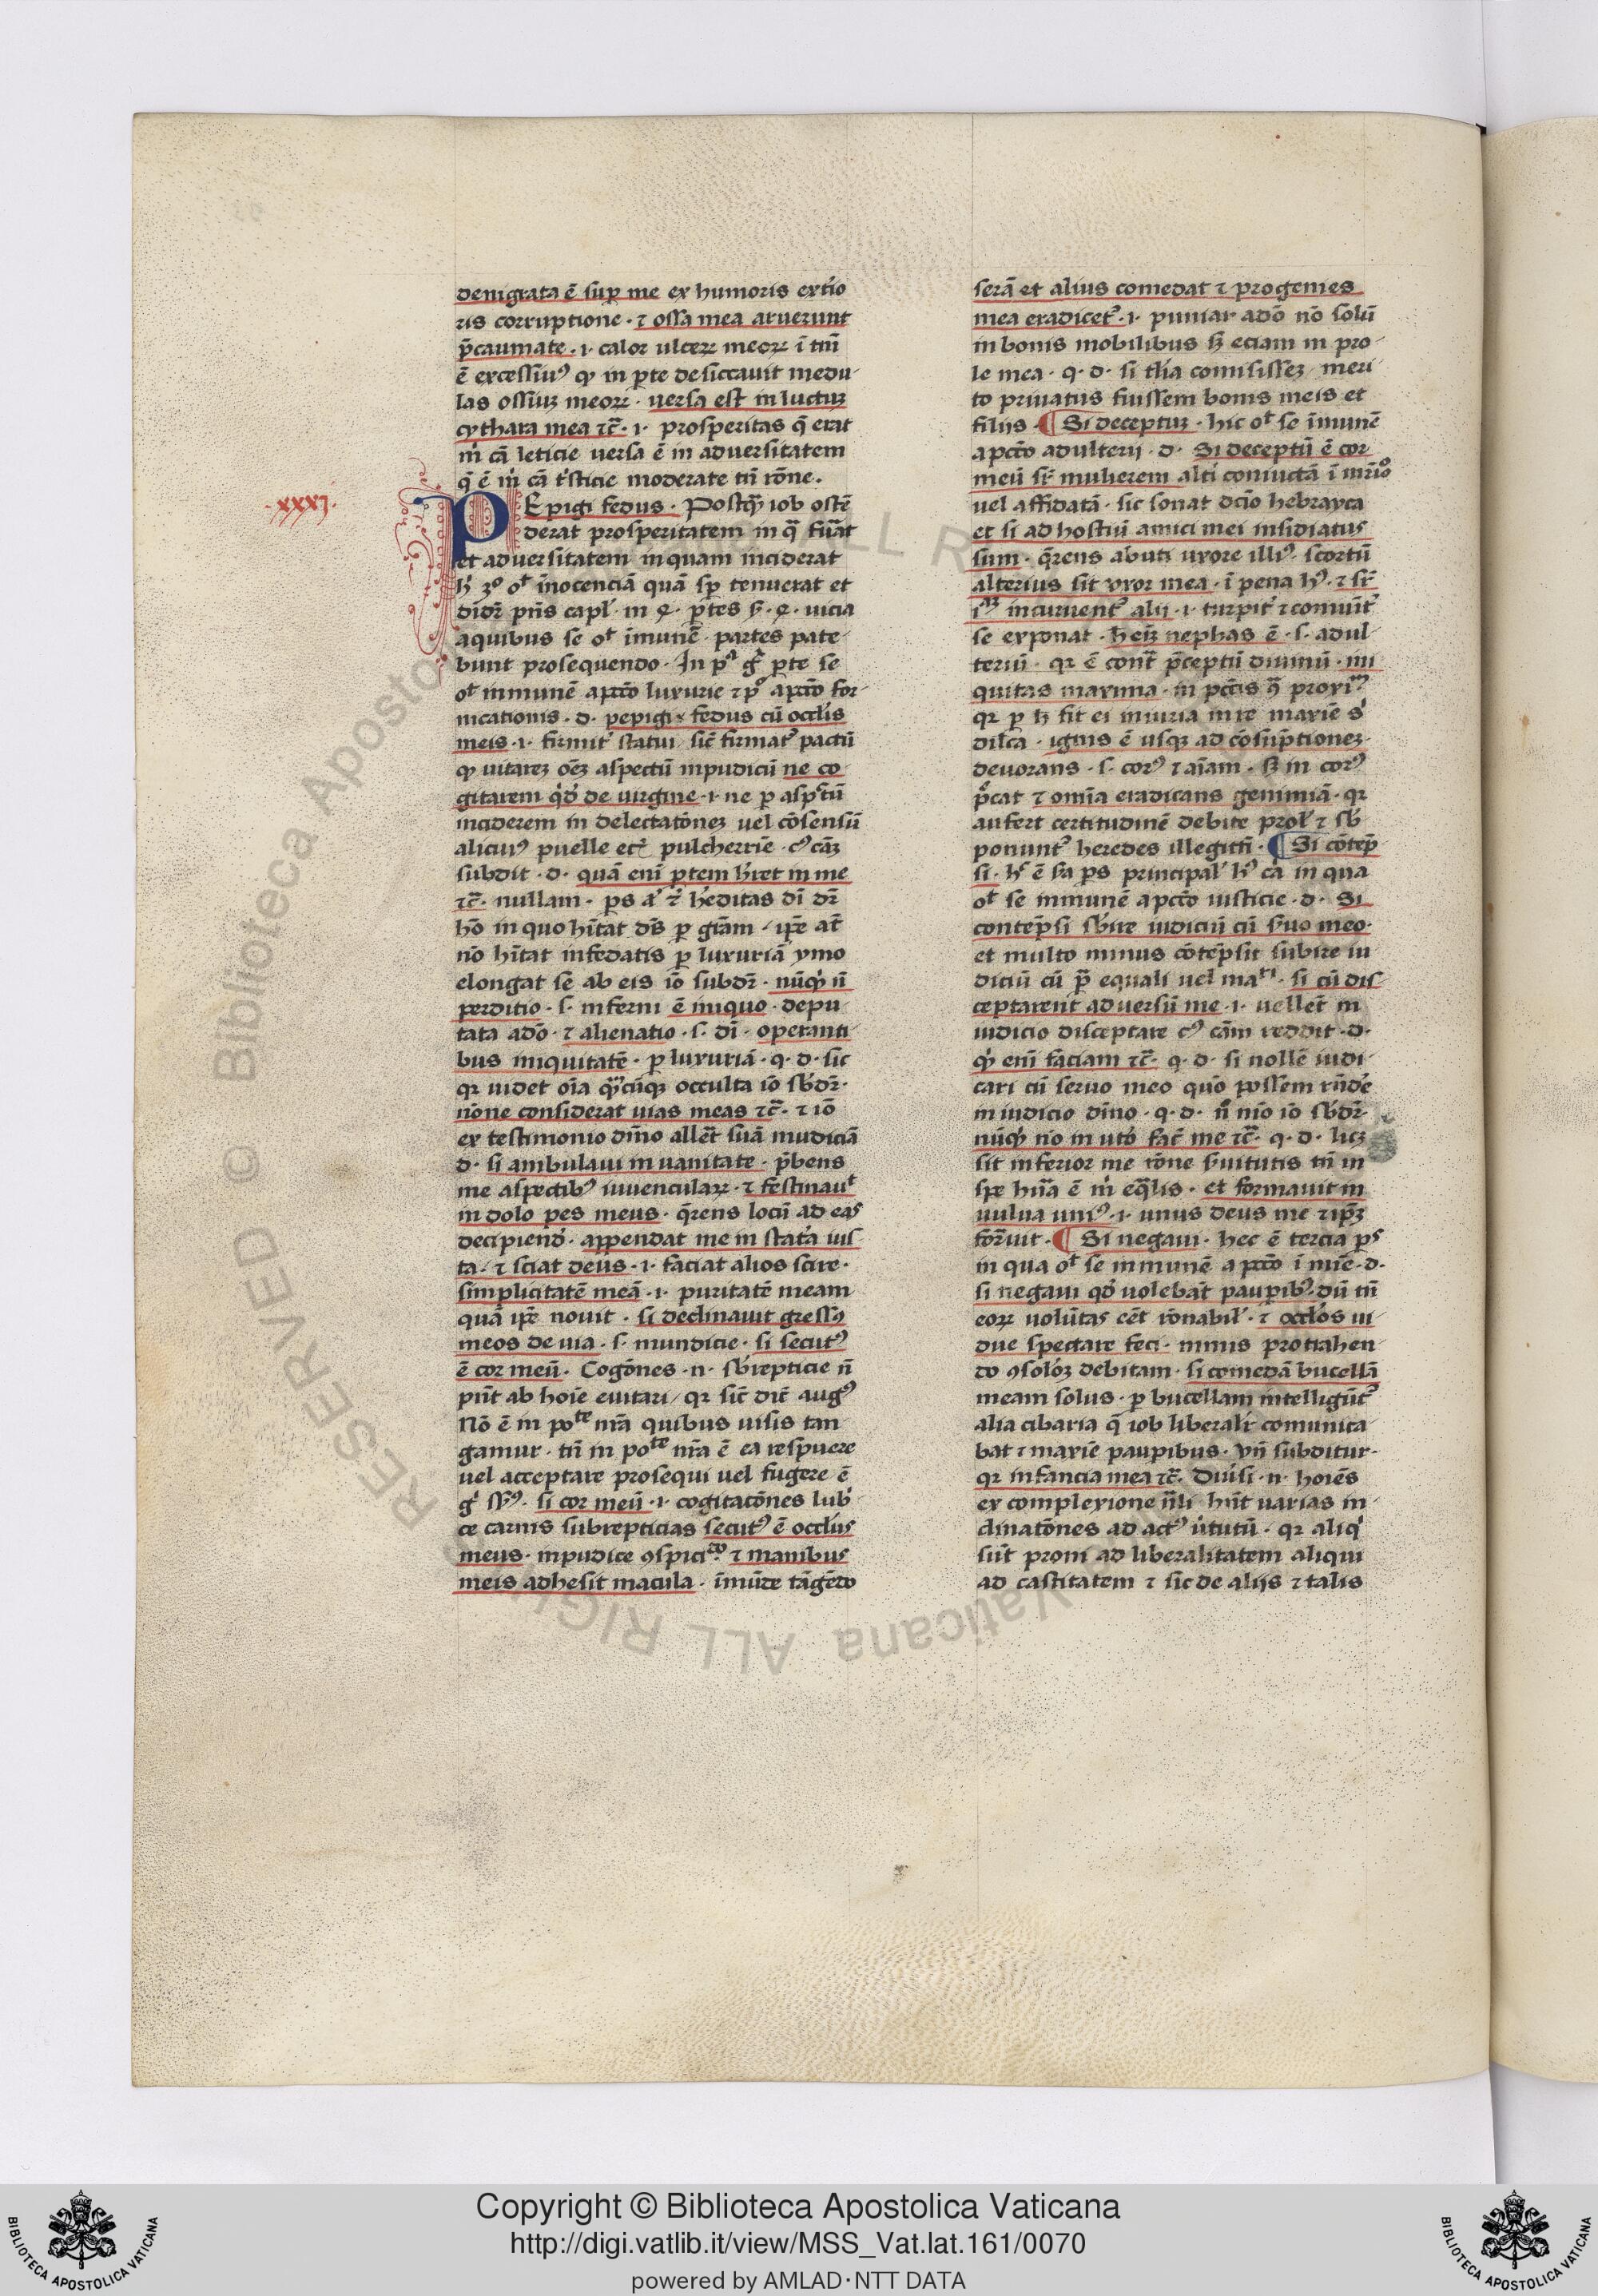 denigrata ē sup me ex humoris exti̇o
ris corruptione · ⁊ ossa mea aruerunt
p̄caumate · i · calor ulceꝝ meoꝝ ī tm̄
ē excessiuꝰ ꝙ in ꝑte desiccauit medu
las ossiuꝫ meoꝝ · uersa est in luctuꝫ
cythara mea ⁊c̄ · i · prosperitas q̄ erat
m̄ cā leticie uersa ē in aduersitatem
q̄ ē m̄ cā tⁱsticie moderate tn̄ rōne .
· xxxj ·
PEpigi fedus · Postq̄ꝫ iob ostē
derat prosperitatem in q̄ fuāt
et aduersitatem in quam inciderat
h̓ 3º oᵗ īnocenciā quā sꝑ tenuerat et
didr̄ pn̄s capl̓ · in ꝗ · ꝑtes ẜ · ꝗ · uicia
aquibus se oᵗ īmunē · partes pate
bunt prosequendo · In pᵃ gͦ ꝑte se
oᵗ inmunē apctō luxurie ⁊ pº apctō for
nicationis · d · pepigi fedus cū occlis
meis · i · firmit̓ statui sic̄ firmatᵣ pactū
ꝙ uitareꝫ oēꝫ aspectū inpudicū ne co
gitarem qͥd̓ de uirgine · i · ne ꝑ aspctū
inciderem in delectatōneꝫ uel cōsensū
alicuiꝰ puelle etc̄ pulcherrīe · cꝰ cāꝫ
subdit · d · quā eni ꝑtem h̓ret in me
⁊c̄ · nullam · ps a̓ ⁊̄ h̓editas dī dr̄
hō in quo hītat dn̄s ꝑ grām · ip̄e at̄
nō hītat infedatis ꝑ luxuriā ymo
elongat se ab eis iō subdr̄ · nūqͥd n̄
perditio · s · inferni ē iniquo · depu
tata adō · ⁊ alienatio · s · dī · operanti
bus iniquitatē · ꝑ luxuriā · q · d · sic
qꝛ uidet oīa q̄cūqꝫ occulta iō sb̓dr̄ ·
nōne considerat uias meas ⁊c̄ · ⁊ iō
ex testimonio diu̅o allet̄ suā mudiciā
d · si ambulaui in uanitate · p̄bens
me aspectibꝰ iuuenculaꝝ · ⁊ festinauᵗ
in dolo pes meus · q̄rens locū ad eas
decipiend̓ · appendat me in stata̓ ius
ta · ⁊ sciat deus · i · faciat alios scire ·
simplicitatē meā · i · puritatē meam
quā ip̄e nouit · si declinauit gressꝰ
meos de uia · s · mundicie · si secutꝰ
ē cor meū · Cogōnes · n · sb̓repticie n̄
pn̄t ab hoīe euitari / qꝛ sic̄ dic̄ augꝰ
Nō ē in poᵗᵉ nr̄a quibus uisis tan
gamur · tn̄ in poᵗᵉ nr̄a ē ea respuere
uel acceptare prosequi uel fugere ē
gͦ · si cor meū · i · cogitatōnes lub̓
ce carnis subrepticias secutꝰ ē occlus
meus · inpudice ꝯspiciᵈᵒ · ⁊ manibus
meis adhesit macula · īmūde tāgēdo
serā et alius comedat ⁊ progenies
mea eradicetᵣ · i · puniar adō nō solū
in bonis mobilibus ẜꝫ eciam in pro
le mea · q · d · si tl̓ia comisisseꝫ meri
to priuatus fuissem bonis meis et
filijs · ¶ Si deceptuꝫ · hic oᵗ se īmunē
apctō adulterij · d · Si deceptū ē cor
meū sr̄ mulierem altī coniuctā ī mr̄īº
uel affidatā · sic sonat dcīo hebrayca
et si ad hostiū amici mei insidiatus
sum · q̄rens abuti uxore illiꝰ scortū
alterius sit uxor mea · ī pena hꝰ · ⁊ sr̄
iᵃꝫ incuruentᵣ alij · i · turpit̓ ⁊ comuīt̓
se exponat · h̓ eiꝫ nephas ē · s · adul
teriū · qꝛ ē cont̄ p̄ceptū diuinū · ini
quitas maxima · in pctīs q̄ proxiᵐⁱ
qꝛ ꝑ ħ fit ei iniuria in re maxīe s̓
dilc̄a · ignis ē usqꝫ ad cōsūptioneꝫ
deuorans · s · corꝰ ⁊ aīam · ẜꝫ in corꝰ
pͨcat ⁊ omīa eradicans genimiā · qꝛ
aufert certitudinē debite prol̓ ⁊ sb̓
ponuntᵣ heredes illegitti · ¶ Si cōtēp
si · h̓ ē sa ps principal̓ hꝰ ca̓ in qua
oᵗ se inmunē apctō iusticie · d · Si
contēpsi sb̓ire iudiciū cū s̓uo meo ·
et multo minus cōtēpsit subire iu
diciū cū p̄ equali uel maʳⁱ · si cū dis
ceptarent aduersū me · i · uellet̄ in
iudicio disceptare cꝰ cām reddit · d ·
qͥd eni faciam ⁊c̄ · q · d · si nollē iudi
cari cū seruo meo quō possem rn̄de̓
in iudicio dīno · q · d · n̄ nīo iō sb̓dr̄ ·
nūqͥd nō in uto̓ fac̄ me ⁊c̄ · q · d · licꝫ
sit inferior me rōne s̓uitutis tn̄ in
spe hūa ē m̓ eq̄lis · et formauit in
uulua uniꝰ · i · unus deus me ⁊ ip̄ꝫ
forr̄uit · ¶ Si negaui · hec ē tercia ps
in qua oᵗ se inmunē apctō ī mīe · d ·
si negaui qd̓ uolebāt pauꝑibꝰ dū tn̄
eoꝝ uolūtas cēt rōnabil̓ · ⁊ occlos ui
due spectare feci · nimis protrahen
do ꝯsolōꝫ debitam · si comedā bucellā
meam solus · ꝑ bucellam intelligūtᵣ
alia cibaria q̄ iob liberalit̓ comunica
bat ⁊ maxīe pauꝑibus · Vn̄ subditur ·
qꝛ infancia mea ⁊c̄ · Diu̓si · n · hoīēs
ex complexione nāli hn̄t uarias in
clinatōnes ad actꝰ u̓tutū · qꝛ aliq̓
sūt proni ad liberalitatem aliqui
ad castitatem ⁊ sic de alijs ⁊ talis
Copyright © Biblioteca Apostolica Vaticana
http://digi.vatlib.it/view/MSS_Vat.lat.161/0070
powered by AMLAD·NTT DATA